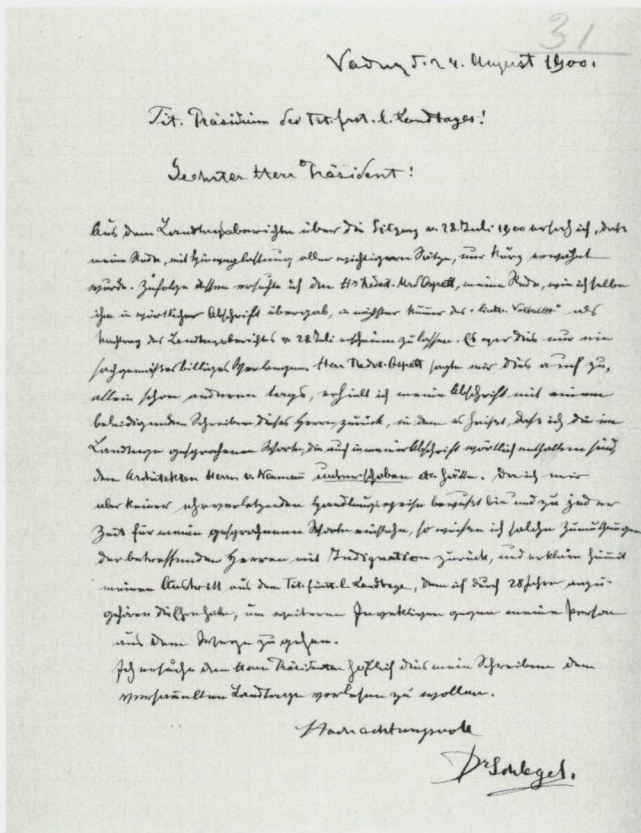 31
Vaduz d. 24. August 1900.
Tit. Präsidium des tit. frstl. l. Landtages!
Geehrter Herr Präsident!
Aus dem Landtagsberichte über die Sitzung v. 28. Juli 1900 ersah ich, daß
meine Rede, mit Hinweglassung aller wichtigeren Sätze, nur kurz erwähnt
wurde. Zufolge dessen ersuchte ich den Hr. Redakt. meine Rede, wie ich selbe
ihm in wörtlicher Abschrift übergab, in nächster Nummer des „Liecht. Volksblatt" als
Nachtrag des Landtagsberichtes v. 28 Juli erscheinen zu lassen. Es war dies nur ein
sachgemäßes billiges Verlangen. Herr Redakt. sagte mir dies auch zu,
allein schon anderen tags, erhielt ich meine Abschrift mit einem
beleidigenden Schreiben dieses Herrn zurück, in dem es heißt, daß ich die im
Landtage gesprochenen Worte, die auch in meiner Abschrift wörtlich enthalten sind,
dem Architekten Herrn v. Neumann unterschoben hätte. Da ich mir
aber keiner ehrverletzenden Handlungsweise bewußt bin und zu jeder
Zeit für meine gesprochenen Worte einstehe, so weise ich solche Zumuthungen
der betreffenden Herren mit Indignation zurück, und erkläre hiemit
meinen Austritt aus dem tit. fürstl. l. Landtage, dem ich durch 28 Jahre anzu-
gehören die Ehre habe, um weiteren Invektiven gegen meine Person
aus dem Wege zu gehen.
Ich ersuche den Herrn Präsidenten höflich dies mein Schreiben dem
versammelten Landtage vorlesen zu wollen.
Hochachtungsvoll
Dr Schlegel.